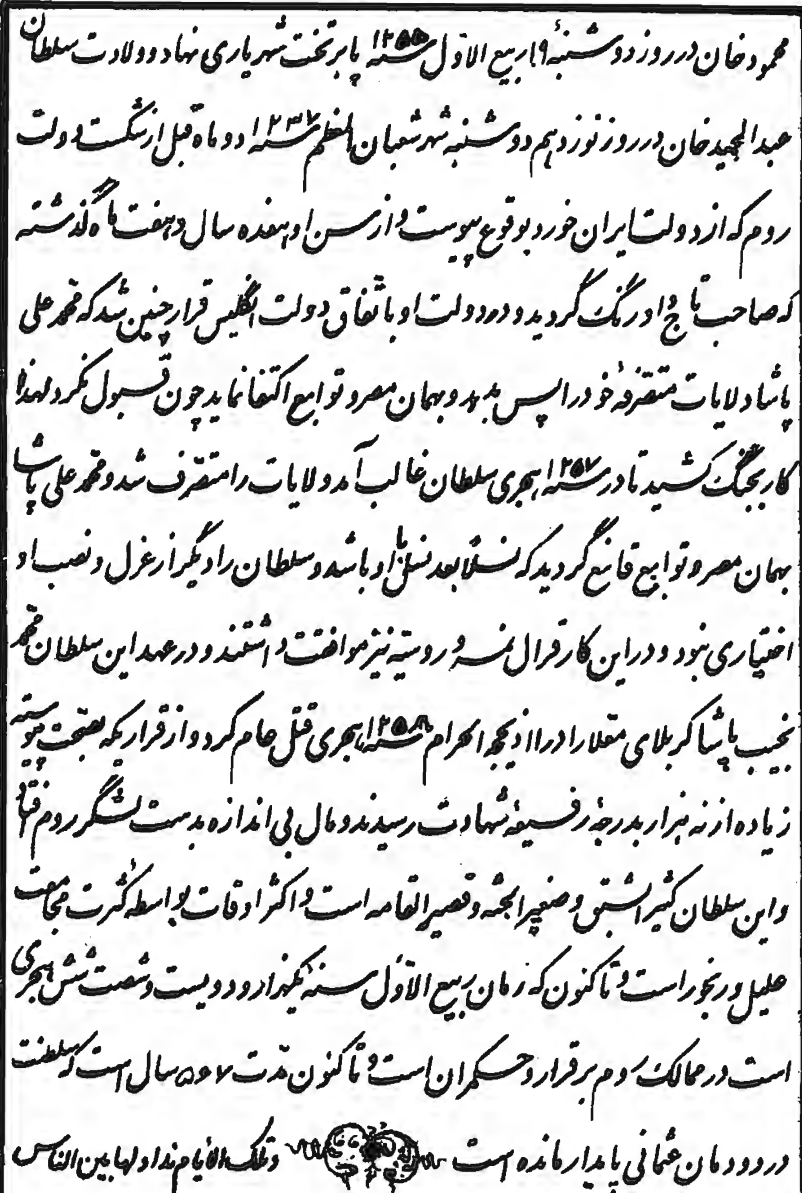 محمود خان در روز دوشنبهٔ ۱۹ ربیع الاول سنه ۱۲۵۵ پا بر تخت شهریاری نهاد و ولادت سلطان
عبدالمجید خان در روز نوزدهم دوشنبه شهر شعبان المعظم سنه ۱۲۳۷ دو ماه قبل از شکست دولت
روم که از دولت ایران خورد بوقوع پیوست و از سن او هفده سال و هفت ماه گذشته
که صاحب تاج و اورنگ گردید و در دولت او باتفاق دولت انگلیس قرار چنین شد که محمد علی
پاشا ولایات متصرفهٔ خود را پس بدهد و بهمان مصر و توابع اکتفا نماید چون قبول نکرد لهذا
کار بجنگ کشید تا در سنه ۱۲۵۷ هجری سلطان غالب آمد و ولایات را متصرف شد و محمد علی پاشا
بهمان مصر و توابع قانع گردید که نسلاً بعد نسل با او باشد و سلطان را دیگر از عزل و نصب او
اختیاری نبود و در این کار قرال نمسه و روسیّه نیز موافقت داشتند و در عهد این سلطان محمد
نجیب پاشا کربلای معلا را در ۱۱ ذیحجه الحرام سنه ۱۲۵۸ هجری قتل عام کرد و از قراریکه بصحت پیوسته
زیاده از نه هزار بدرجهٔ رفیعهٔ شهادت رسیدند و مال بی اندازه بدست لشگر روم افتاد
و این سلطان کثیر الشبق و صغیر الجثه و قصیر القامه است و اکثر اوقات بواسطهٔ کثرت مجامعت
علیل و رنجور است و تا کنون که زمان ربیع الاوّل سنهٔ یکهزار و دویست و شصت شش هجری
است در ممالک روم برقرار و حکمران است و تا کنون مدّت ۵۶۷ سال است که سلطنت
در دودمان عثمانی پایدار مانده است و تلک الایام نداولها بین الناس